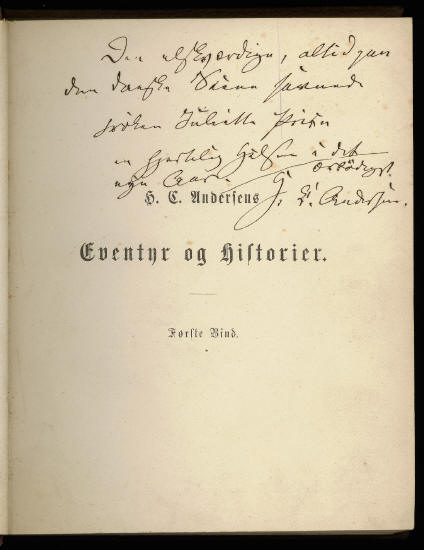 Den elskværdige, altid paa
den danske Scene savnede
Frøken Juliette Price
en hjertelig Hilsen i det
nye Aar. ærbødigst
H. C. Andersen.
H. C. Andersens
Eventyr og Historier.
Første Bind.